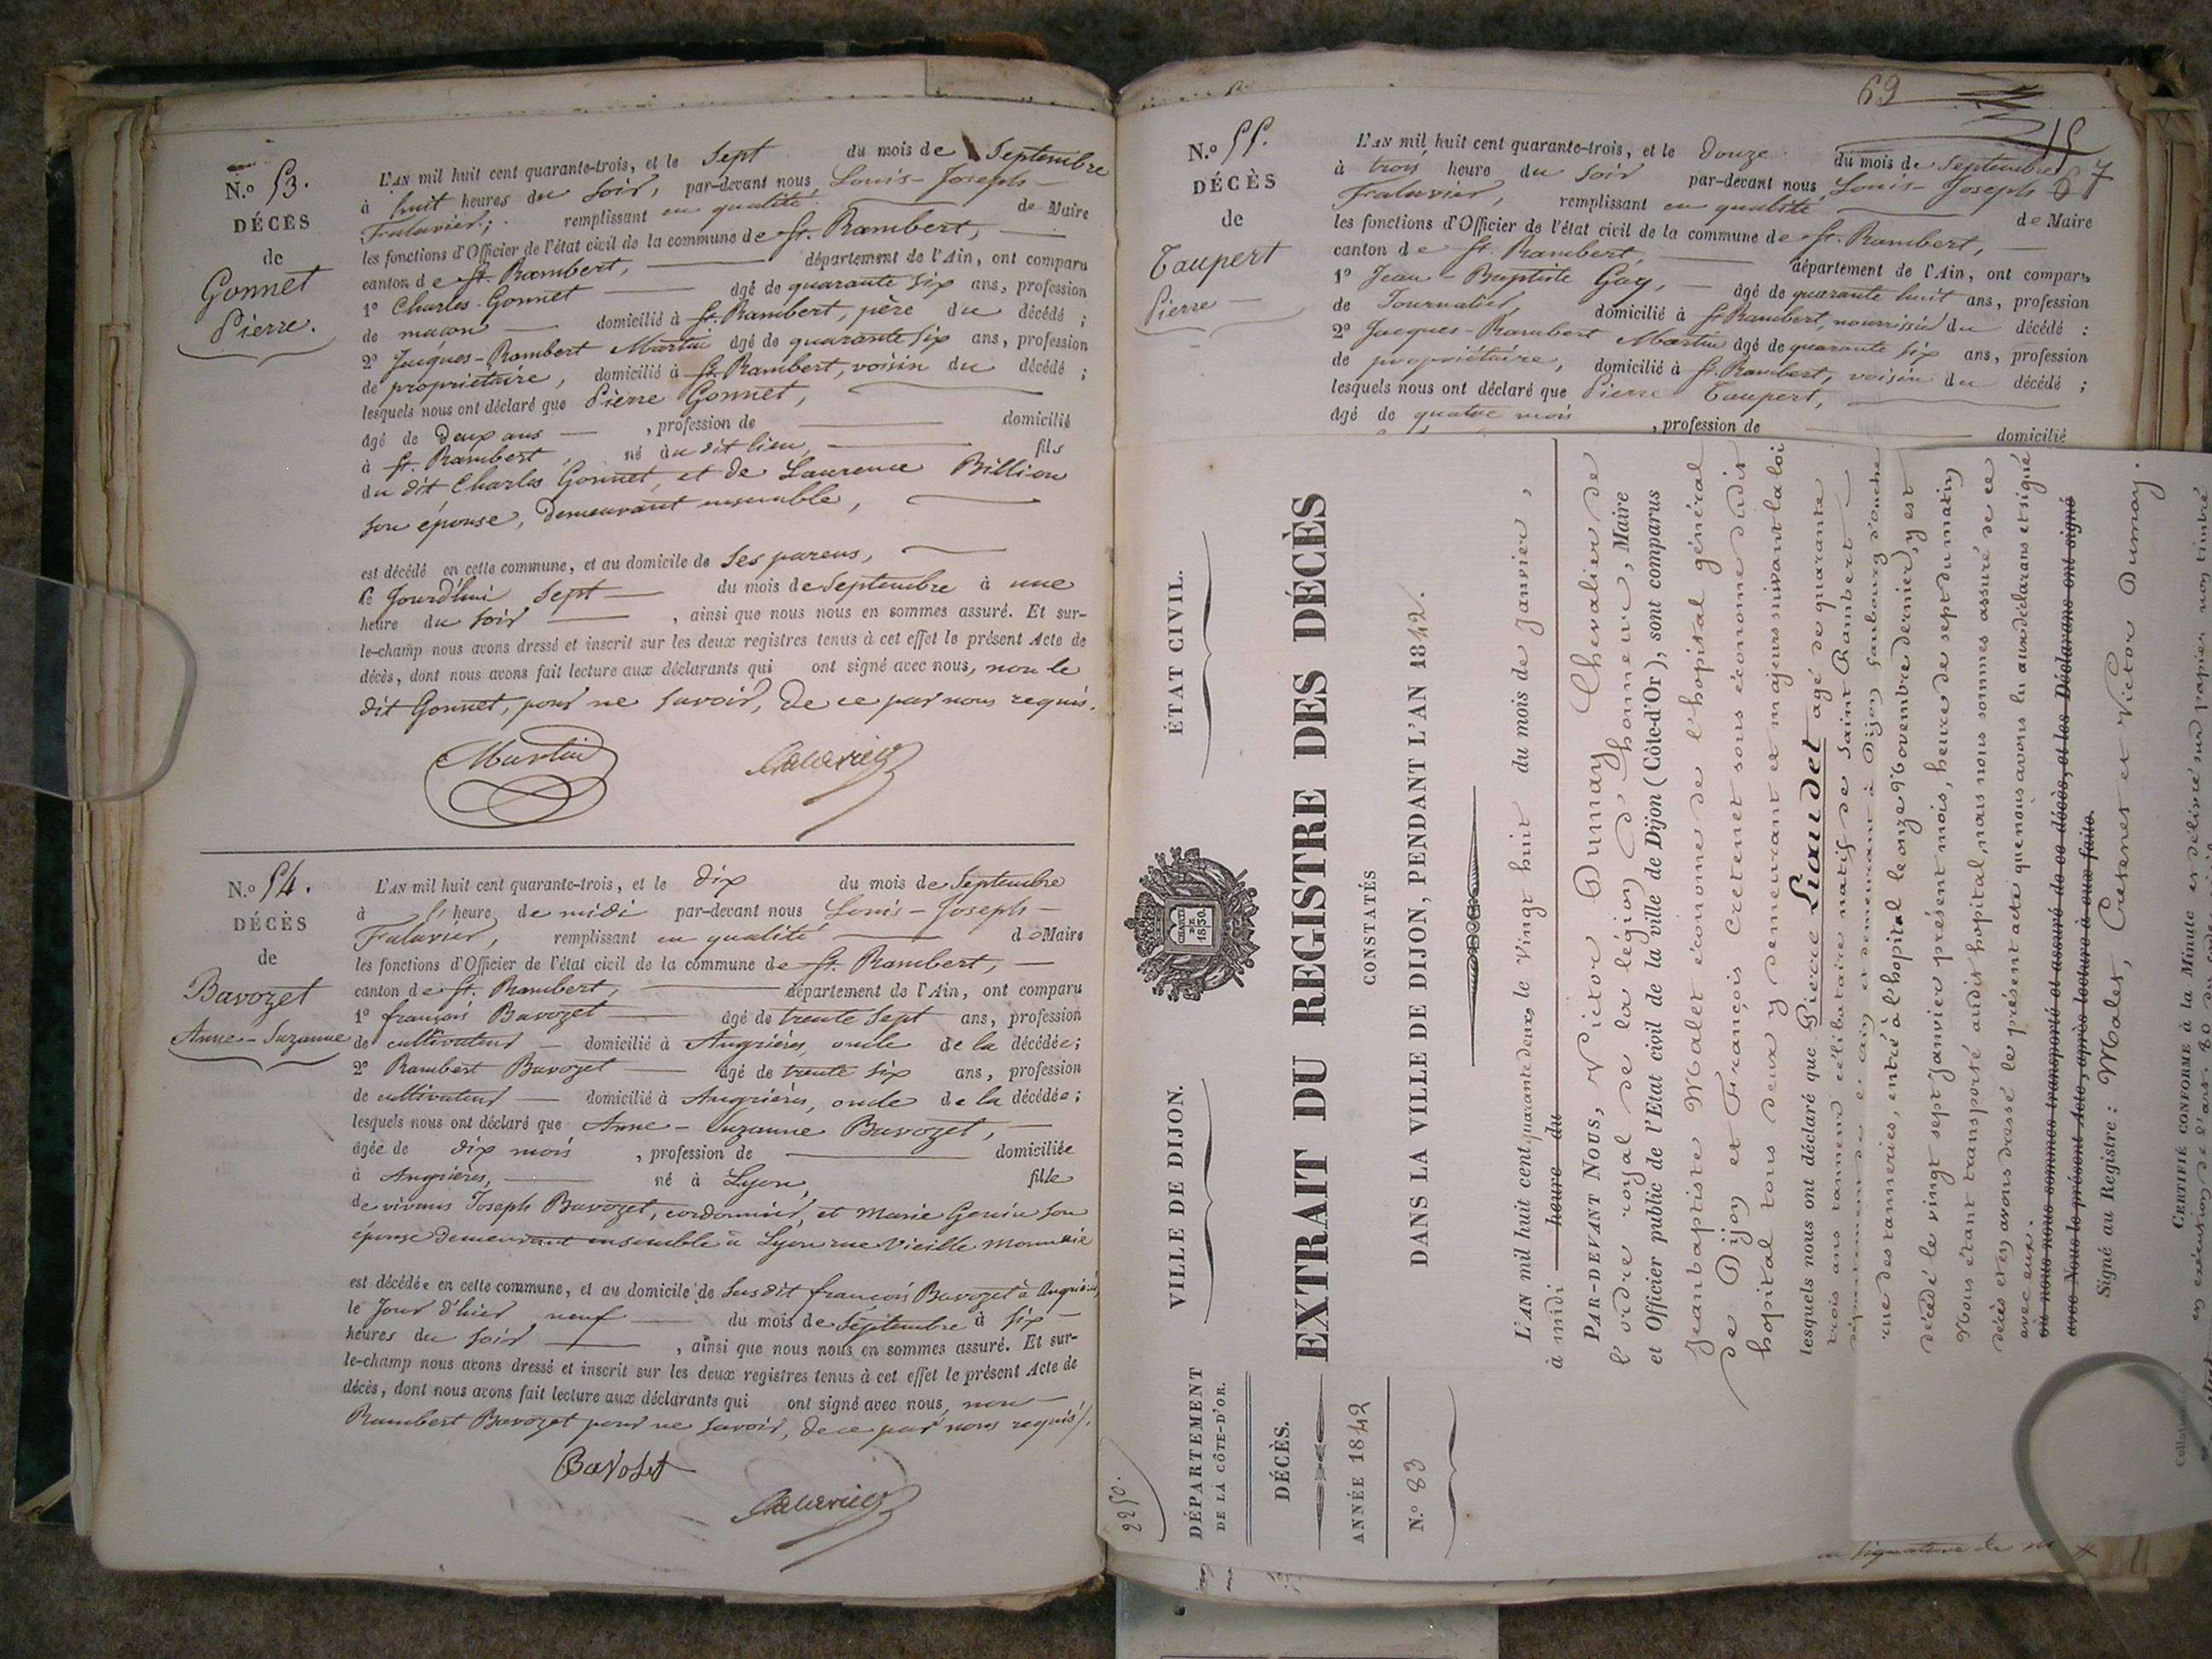 N.o 53.
DÉCÈS
de
Gonnet
Pierre.
L'AN mil huit cent quarante-trois, et le Sept du mois de Septembre
à huit heures du Soir, par-devant nous Louis-Joseph
remplissant en qualité de Maire
les fonctions d'Officier de l'état civil de la commune de St. Rambert,
canton de St. Rambert, département de l'Ain, ont comparu
1o Charles Gonnet âgé de quarante six ans, profession
de maçon domicilié à St. Rambert, père du décédé ;
2o Jacques-Rambert Martin âgé de quarante six ans, profession
de propriétaire, domicilié à St. Rambert, voisin du décédé ;
lesquels nous ont déclaré que Pierre Gonnet,
âgé de deux ans , profession de domicilié
à St. Rambert, né au dit lieu, fils
du dit Charles Gonnet, et de Laurence Billion
son épouse, demeurant ensemble,
est décédé en cette commune, et au domicile de Ses parens,
le Jourd'hui Sept du mois de Septembre à une
heure du Soir , ainsi que nous nous en sommes assuré. Et sur-
le-champ nous avons dressé et inscrit sur les deux registres tenus à cet effet le présent Acte de
décès, dont nous avons fait lecture aux déclarants qui ont signé avec nous, non le
dit Gonnet, pour ne Savoir, de ce par nous requis.
Martin
N.o 54.
DÉCÈS
de
Bavozet
Anne-Suzanne
L'AN mil huit cent quarante-trois, et le dix du mois de Septembre
à l'heure de midi par-devant nous Louis-Joseph
remplissant en qualité de Maire
les fonctions d'Officier de l'état civil de la commune de St. Rambert,
canton de St. Rambert, département de l'Ain, ont comparu
1o françois Bavozet âgé de trente Sept ans, profession
de cultivateur domicilié à Angrières, oncle de la décédée;
2o Rambert Bavozet âgé de trente Six ans, profession
de cultivateur domicilié à Angrières, oncle de la décédée;
lesquels nous ont déclaré que Anne-Suzanne Bavozet,
âgée de dix mois , profession de domiciliée
à Angrières, né à Lyon, fille
de vivans Joseph Bavozet, cordonnier, et Marie Genin son
épouse demeurant ensemble à Lyon rue Vieille Monnaie
est décédée en cette commune, et au domicile de Susdit françois Bavozet à Angrières,
le Jour d'hier neuf du mois de Septembre à Six
heures du Soir , ainsi que nous nous en sommes assuré. Et sur-
le-champ nous avons dressé et inscrit sur les deux registres tenus à cet effet le présent Acte de
décès, dont nous avons fait lecture aux déclarants qui ont signé avec nous, non
Rambert Bavozet pour ne Savoir, de ce par nous requis.
Bavoset
69
67
N.o 55.
DÉCÈS
de
Taupert
Pierre
L'AN mil huit cent quarante-trois, et le douze du mois de Septembre
à trois heure du Soir par-devant nous Louis-Joseph
remplissant en qualité de Maire
les fonctions d'Officier de l'état civil de la commune de St. Rambert,
canton de St. Rambert, département de l'Ain, ont comparu
1o Jean-Baptiste Gay, âgé de quarante huit ans, profession
de Journalier, domicilié à St Rambert, nourrissier du décédé :
2o Jacques-Rambert Martin âgé de quarante Six ans, profession
de propriétaire, domicilié à St. Rambert, voisin du décédé ;
lesquels nous ont déclaré que Pierre Taupert,
âgé de quatre mois , profession de domicilié
2250.
DÉPARTEMENT
DE LA CÔTE-D'OR.
VILLE DE DIJON.
ÉTAT CIVIL.
CHARTE
DE
1830.
DÉCÈS.
ANNÉE 1842
N.o 83
EXTRAIT DU REGISTRE DES DÉCÈS
CONSTATÉS
DANS LA VILLE DE DIJON, PENDANT L'AN 1842.
L'AN mil huit cent quarante deux, le Vingt huit du mois de Janvier,
à midi heure du
PAR-DEVANT NOUS, Victor Dumay Chevalier de
l'ordre royal de la légion d'honneur, Maire
et Officier public de l'Etat civil de la ville de Dijon (Côte-d'Or), sont comparus
Jeanbaptiste Malet économe de l'hopital général
de Dijon et François Cretenet sous économe dudit
hopital tous deux y demeurant et majeurs suivant la loi
lesquels nous ont déclaré que Pierre Liaudet agé de quarante
trois ans tanneur célibataire natif de Saint Rambert
département de l'ain et demeurant à Dijon faubourg d'ouche
rue des tanneries, entré à l'hopital le onze 9bre dernier, y est
décédé le vingt sept Janvier présent mois, heures de sept du matin
Nous étant transporté audit hopital, nous nous sommes assuré de ce
décès et en avons dressé le présent acte que nous avons lu aux déclarans et signé
avec eux.
où nous nous sommes transporté et assuré de ce décès, et les Déclarans ont signé
avec Nous le présent Acte, après lecture à eux faite.
Signé au Registre : Malet, Cretenet et Victor Dumay.
CERTIFIÉ CONFORME à la Minute et délivré sur papier non timbré
en exécution de l'art. 80 du code